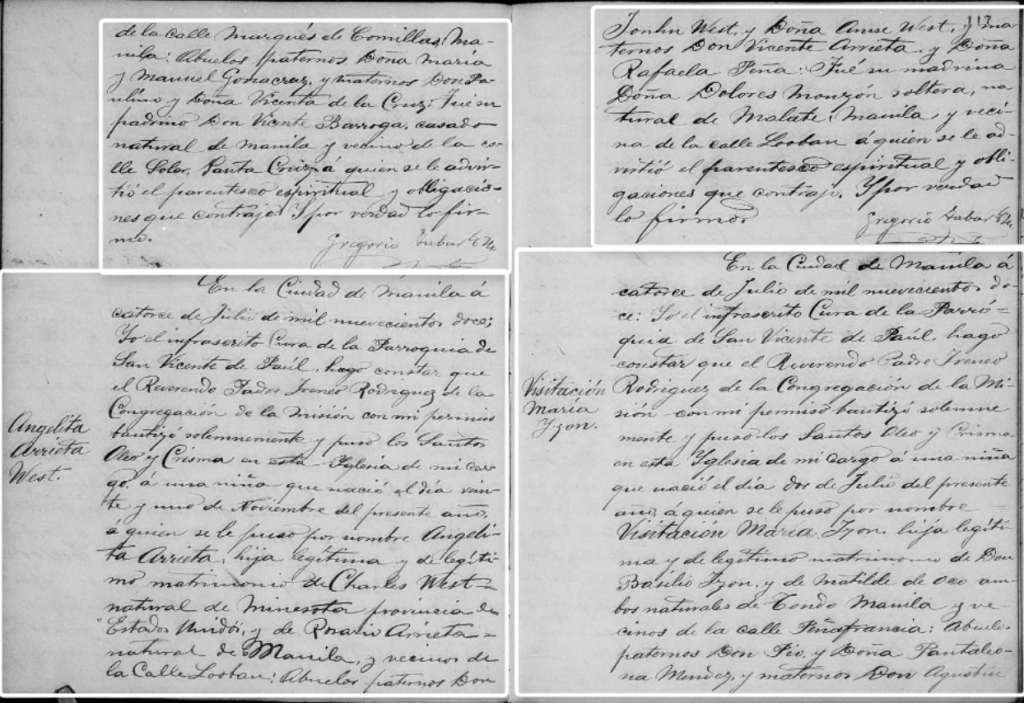 de la calle Marqués de Comillas, Ma-
nila: Abuelos paternos Doña María
y Manuel Gomacraz, y maternos Don Pa-
ulino y Doña Vicenta de la Cruz: Fué su
padrino Don Vicente Barroga, casado
natural de Manila y vecino de la ca-
lle Soler, Santa Cruz, á quien se le advir-
tió el parentesco espiritual y obligacio-
nes que contrajo. Y por verdad lo fir-
mo.
Gregorio
En la Ciudad de Manila á
catorce de Julio de mil nuevecientos doce;
Yo el infrascrito Cura de la Parroquia de
San Vicente de Paúl, hago constar que
el Reverendo Padre Ireneo Rodriguez de la
Congregación de la Misión con mi permiso
bautizó solemnemente y puso los Santos
Oleo y Crisma en esta Iglesia de mi car-
go, á una niña que nació el día vein-
te y uno de Noviembre del presente año,
á quien se le puso por nombre Angeli-
ta Arrieta, hija legítima y de legíti-
mo matrimonio de Charles West
natural de Minesota provincia de
Estados Unidos, y de Rosario Arrieta
natural de Manila, y vecinos de
la Calle Looban: Abuelos paternos Don
Angelita
Arrieta
West.
113
Jonhn West, y Doña Anne West, y ma-
ternos Don Vicente Arrieta, y Doña
Rafaela Peña: Fué su madrina
Doña Dolores Monzón soltera, na
tural de Malate, Manila, y veci-
na de la calle Looban á quien se le ad-
virtió el parentesco espiritual y obli-
gaciones que contrajo. Y por verdad
lo firmo.
Gregorio
En la Ciudad de Manila á
catorce de Julio de mil nuevecientos do-
ce: Yo el infrascrito Cura de la Parró-
quia de San Vicente de Paúl, hago
constar que el Reverendo Padre Ireneo
Rodriguez de la Congregación de la Mi-
sión con mi permiso bautizó solemne
mente y puso los Santos Oleo y Crisma
en esta Iglesia de mi cargo á una niña
que nació el día dos de Julio del presente
año, á quien se le puso por nombre
Visitación María Tyon, hija legíti-
ma y de legítimo matrimonio de Don
Basilio Tyon, y de Matilde de Oco am-
bos naturales de Tondo Manila y ve-
cinos de la calle Peñafrancia: Abuelos
paternos Don Pio, y Doña Pantaleo-
na Mendez, y maternos Don Agustin
Visitación
María
Tyon.